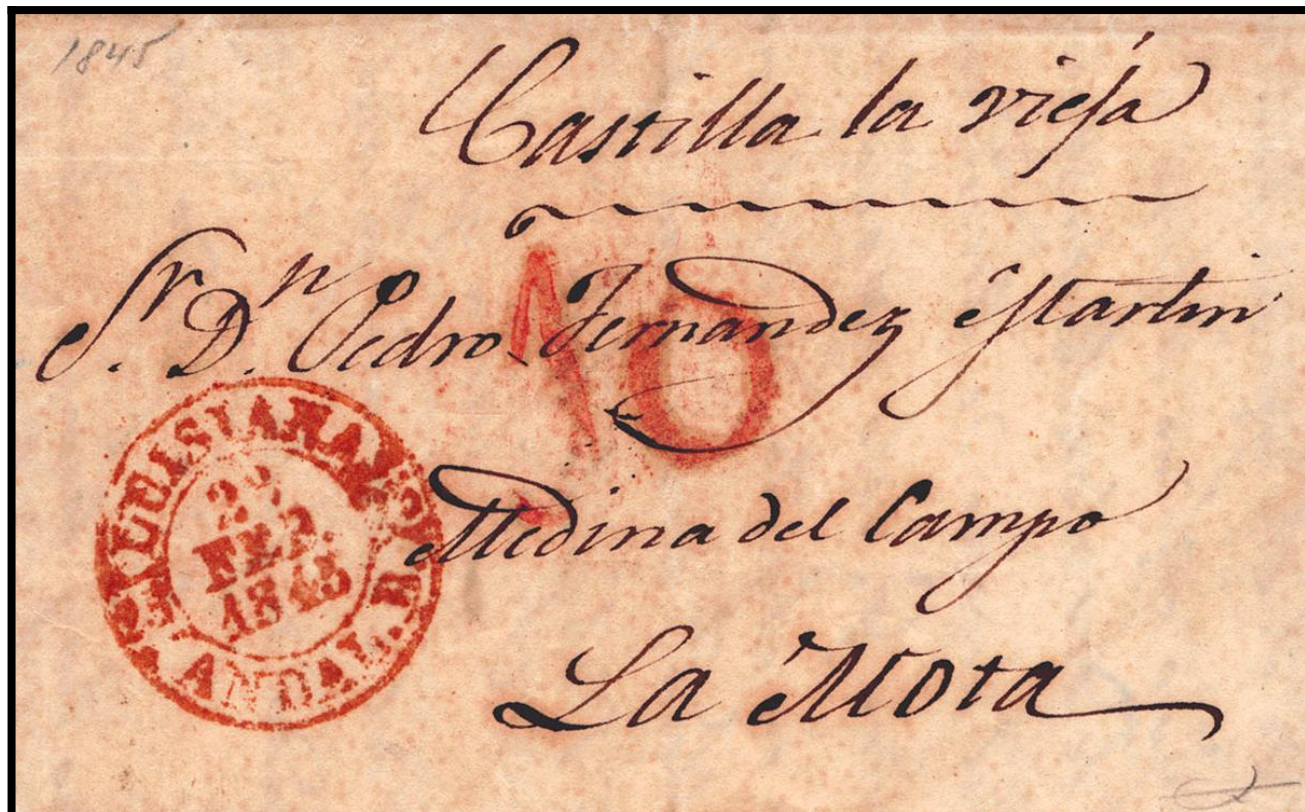 1845
Castilla la vieja
Sr. Dn. Pedro Fernandez Martin
10
Medina del Campo
La Mota
LUISIANA
FEB.
1845
ANDAL. B.